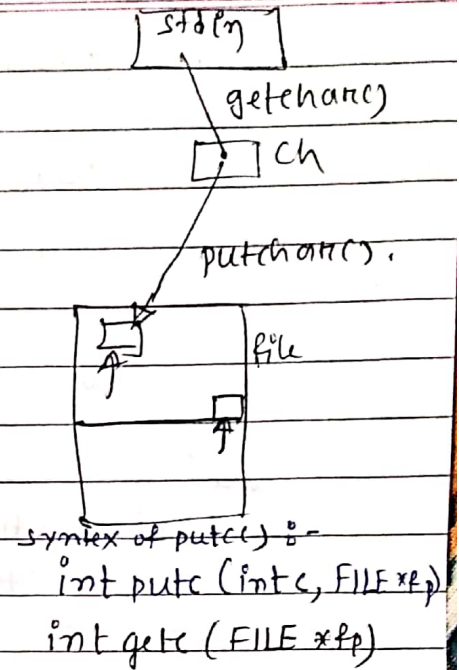 stdin
getchar()
ch
putchar().
file
syntex of putc() :-
int putc (int c, FILE *fp)
int getc (FILE *fp)